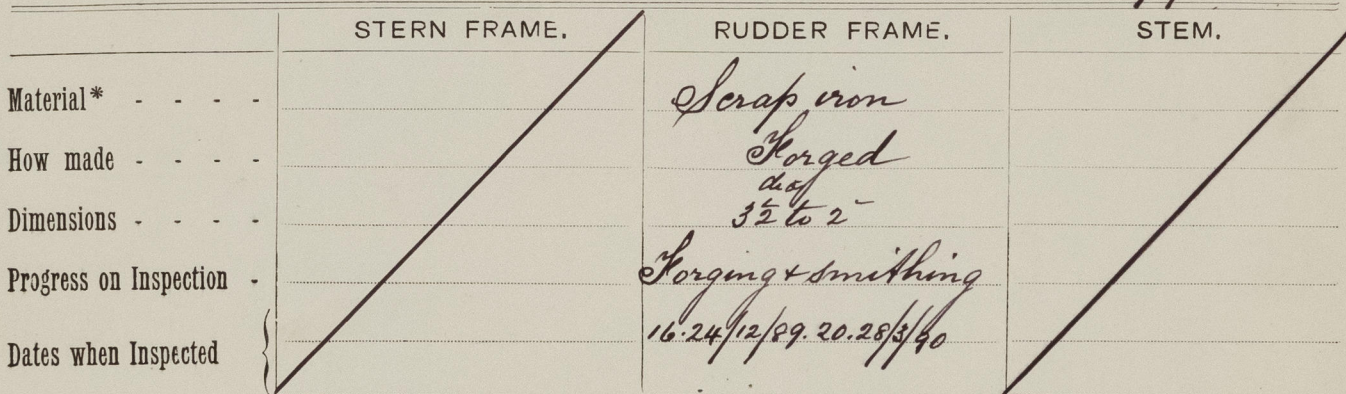 STERN FRAME. RUDDER FRAME. STEM.
Material* - - - - Scrap iron
How made - - - - Forged
Dimensions - - - - 3½ to 2"
Progress on Inspection - Forging & smithing
Dates when Inspected 16.24/12/89. 20.28/3/90